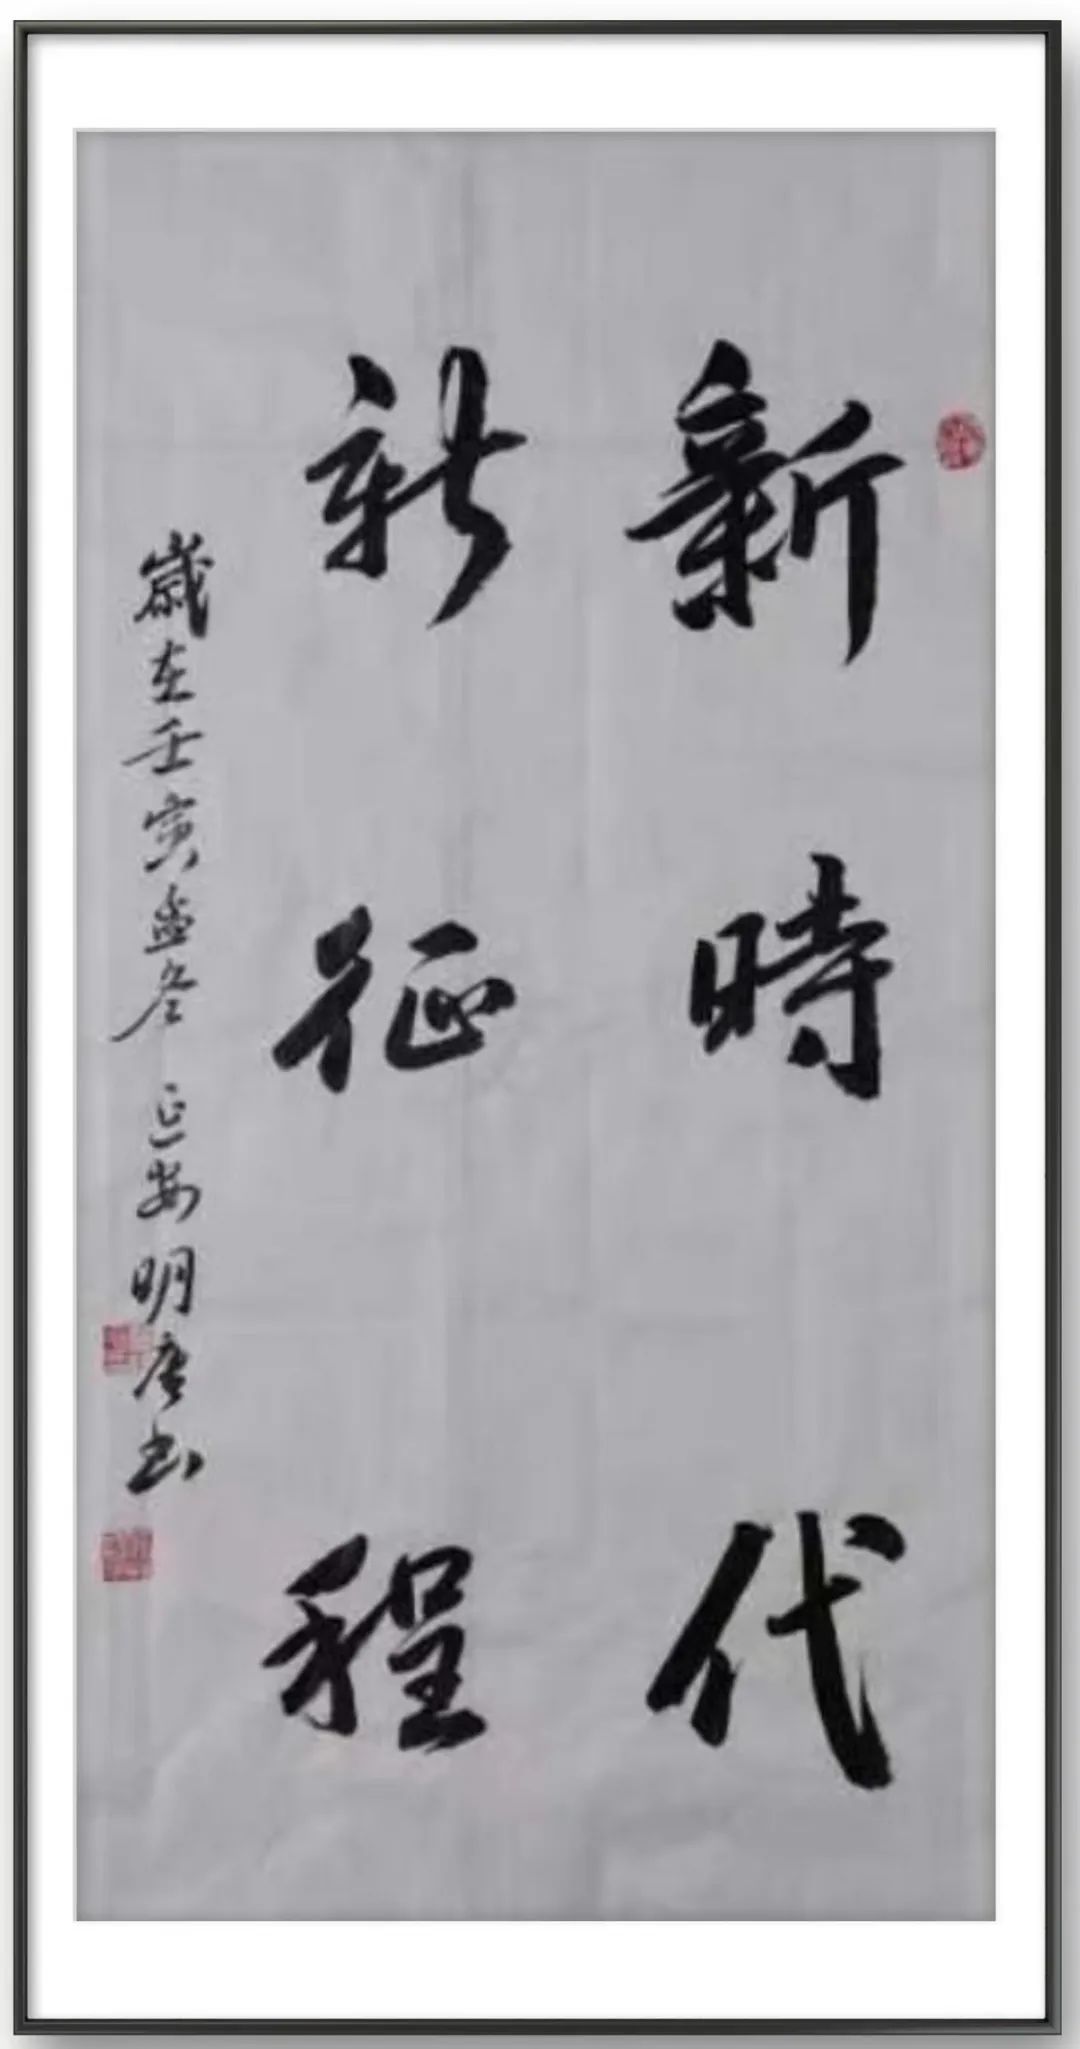 新時代
新征程
歲在壬寅孟冬 正安明唐书